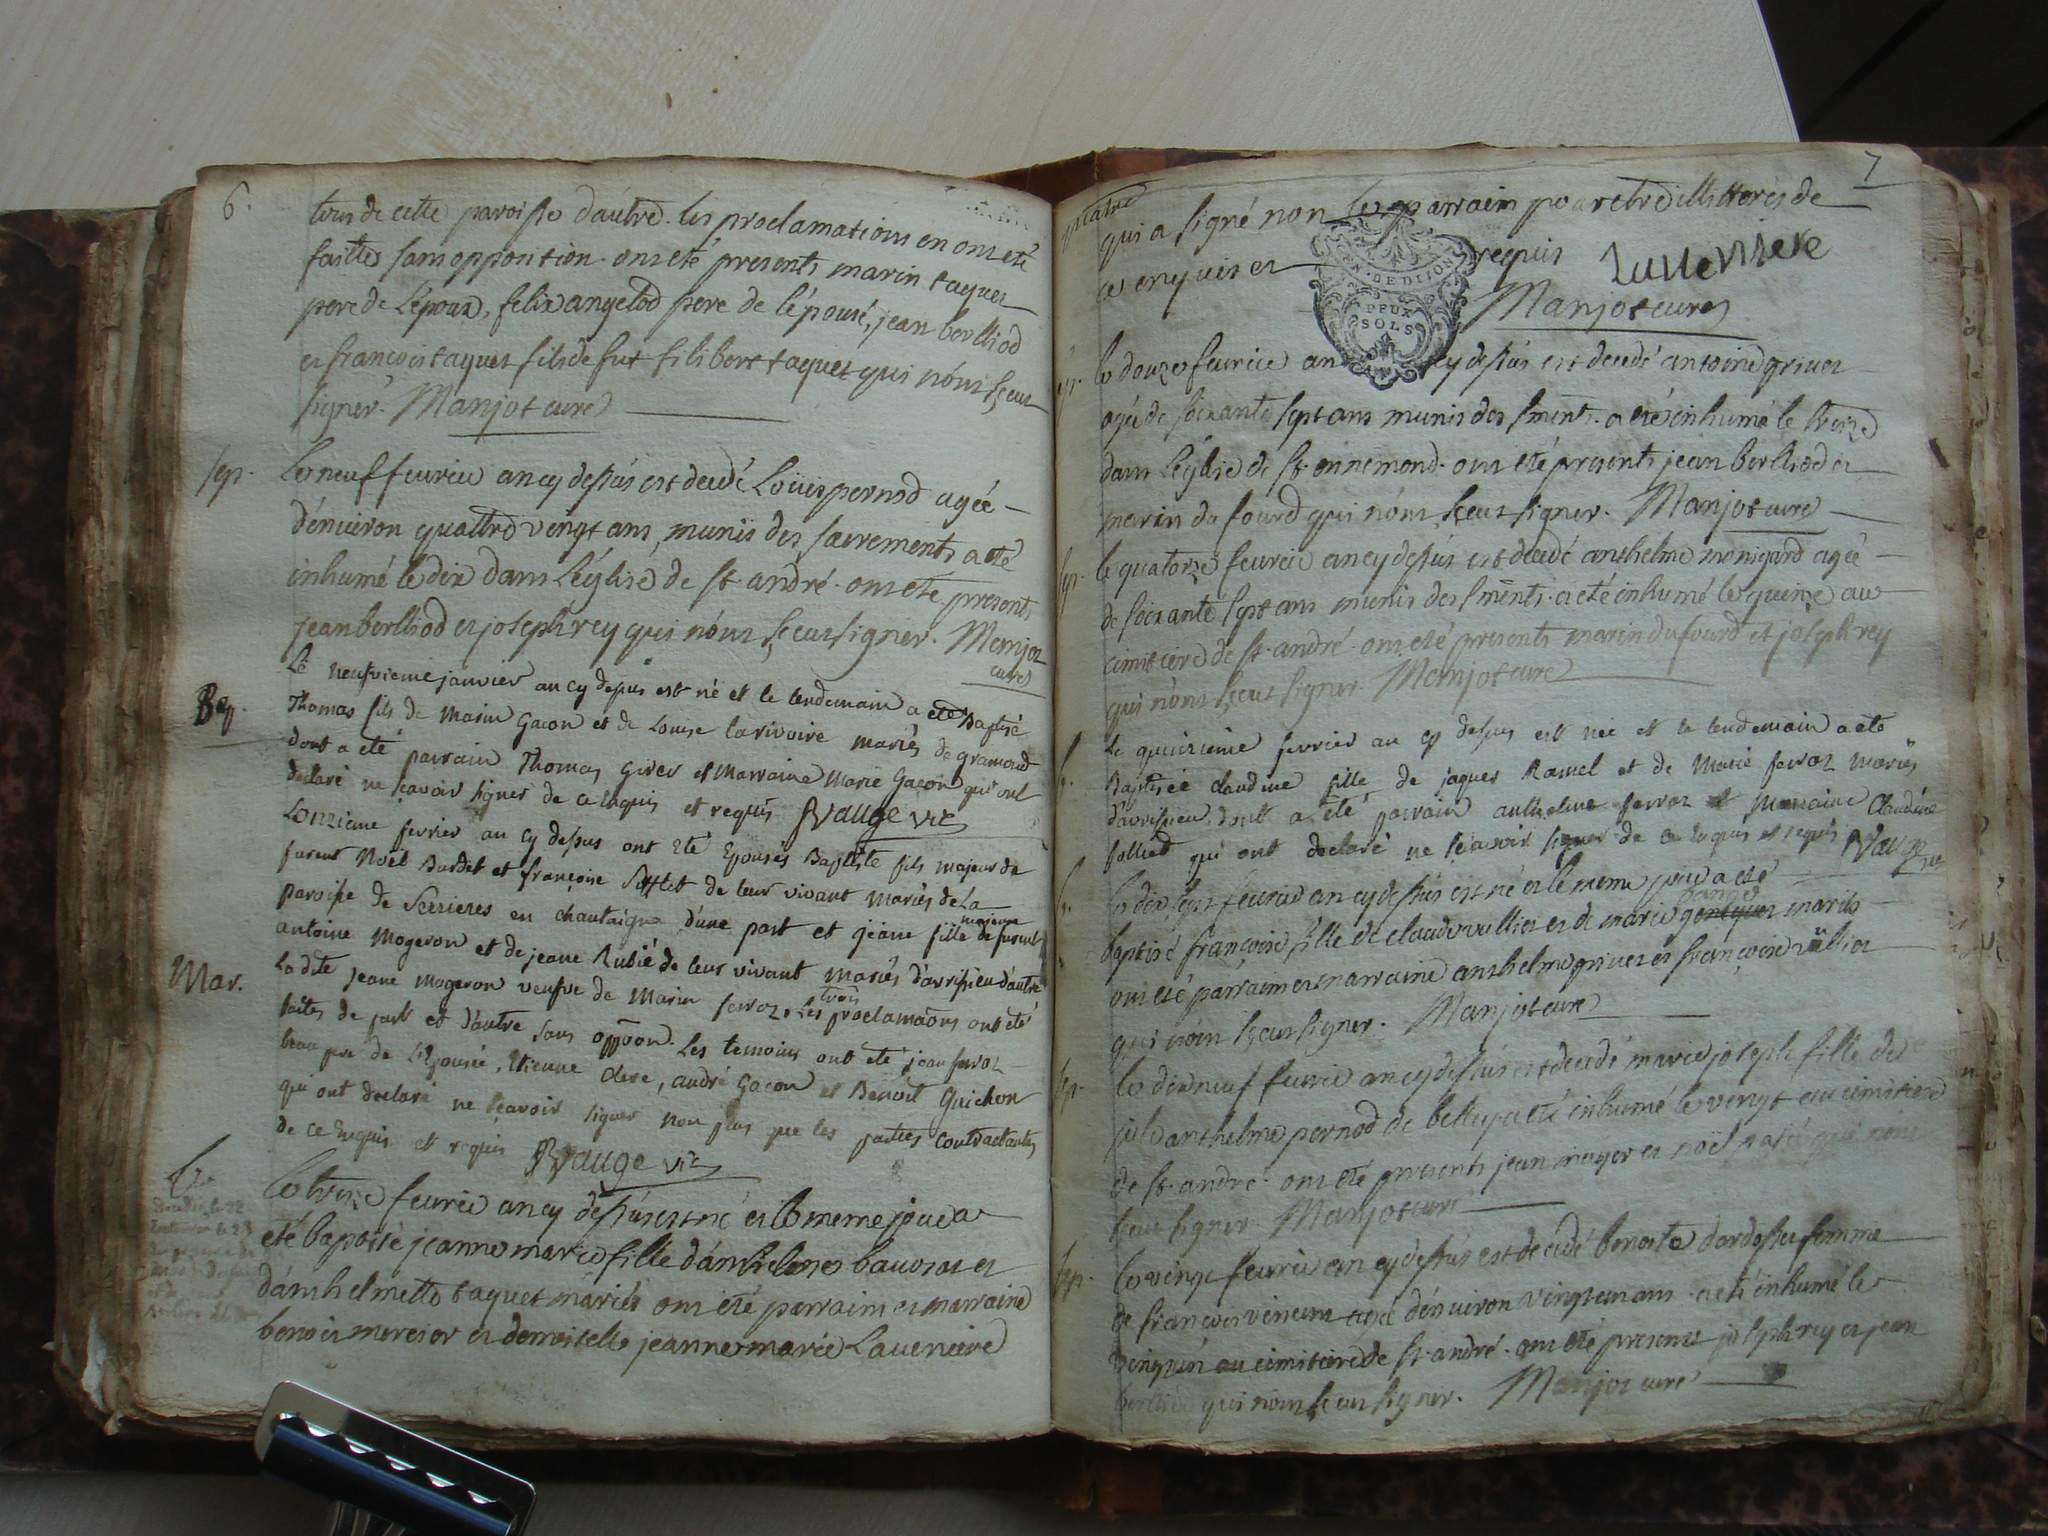 6.
tous de cette paroisse d'autre. les proclamations en ont eté
faittes sans opposition. ont eté presents marin taquet
pere de L'époux, felix angelod pere de l'épouse, jean berlliod
et francois taquet fils de fut filibert taquet qui n'ont sçeut
signer. Manjot curé
sep. Le neuf feurier an cy dessus est decedé Louis pernod agée
d'enuiron quattre vingt ans, munis des sacrements a eté
inhumé le dix dans L'église de st andré. ont eté presents
jean berlliod et joseph rey qui n'ont sçeut signer. Manjot
curé
Bap. Le neufvieme janvier an cy depus est né et le lendemain a eté Baptisé
Thomas fils de Marin Gacon et de Louise Larivoire mariés de gramond
dont a eté parrain Thomas Girer et Marraine Marie Gacon qui ont
declaré ne sçavoir signer de ce Enquis et requis Rvauge vic
Mar. Lonzieme fevrier an cy depus ont eté Epousés Baptiste fils majeur de
furent Noël Bardet et françoise Sifflet de leur vivant mariés de La
paroisse de Serrieres en chautaigne d'une part et jeane fille majeure de furent
antoine Mogeron et de jeane Rubié de leur vivant mariés d'avrissieu d'autre
La dite jeane mogeron veufve de Marin ferroz. Les trois proclamaõns ont été
faites de part et d'autre sans oppõon. Les temoins ont eté jean ferroz
beau pere de L'Epousée, Etienne Clere, andré Gacon et Benoit Guichon
qui ont declaré ne sçavoir signer non plus que les parties contractantes
de ce Enquis et requis Rvauge vic
b. Le treze feurier an cy dessus est né et le meme jour a
eté baptisé jeanne marie fille d'anthelme bauoset et
d'anthelmette taquet mariés ont eté parrain et marraine
benoit mercier et demoiselle jeanne marie Lauerriere
7
qui a signé non le parrain pour etre illitterés de
ce enquis et requis Lauerriere
EN. DE DIJON
DEUX
SOLS
Manjot curé
sep. le douze feurier an cy dessus est decedé antoine griuet
agé de soixante sept ans munis des sments. a eté inhumé le treize
dans L'église de st. annemond. ont eté presents jean berlliod et
marin dufourd qui n'ont sçeut signer. Manjot curé
sep. le quatorze feurier an cy dessus est decedé anthelme monigard agée
de soixante sept ans munis des sments. a eté inhumé le quinze au
cimitiere de st. andré. ont eté presents marin dufourd et joseph rey
qui n'ont sçeut signer Manjot curé
b. Le quinzieme fevrier an cy dessus est née et le lendemain a eté
Baptisée claudine fille de jaques Ramel et de Marie ferroz mariés
d'avrissieu dont a été parrain anthelme ferroz et marraine Claudine
folliet qui ont declaré ne sçavoir signer de ce Enquis et requis Rvauge vic
b. le dix sept feurier an cy dessus est né et le meme jour a eté
baptisé françoise fille de claude vullier et de marie mariés
ont eté parrain et marraine anthelme griuet et françoise vullier
qui n'ont sçeut signer. Manjot curé
sep. le dixneuf feurier an cy dessus est decedé marie joseph fille de
anthelme pernod de a eté inhumé le vingt au cimitiere
de st. andré. ont eté presents jean mayer et noël qui n'ont
sçeut signer Manjot curé
sep. le vingt feurier an cy dessus est decedé benoite dardessus femme
de françois agée d'enuiron vingt un ans. a eté inhumé le
vingt un au cimitiere de st. andré. ont eté presents joseph rey et jean
berlliod qui n'ont sçeut signer. Manjot curé